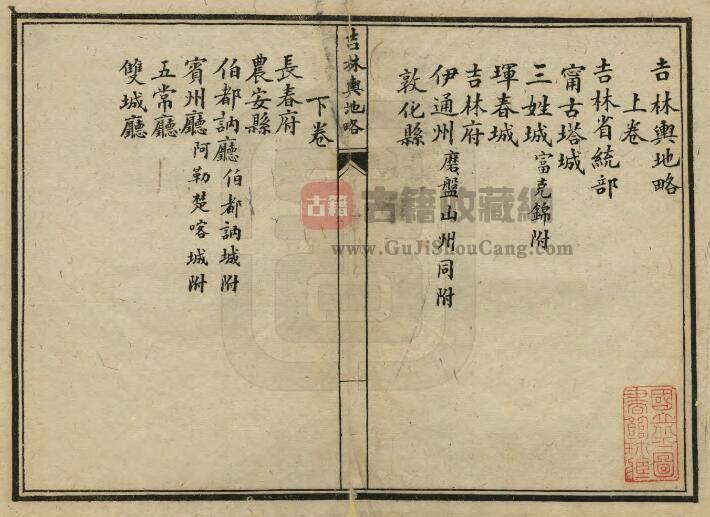 吉林輿地略
上卷
吉林省統部
甯古塔城
三姓城富克錦附
琿春城
吉林府
伊通州磨盤山州同附
敦化縣
吉林輿地略
下卷
長春府
農安縣
伯都訥廳伯都訥城附
賓州廳阿勒楚喀城附
五常廳
雙城廳
古籍 古籍收藏網
www.GuJiShouCang.com